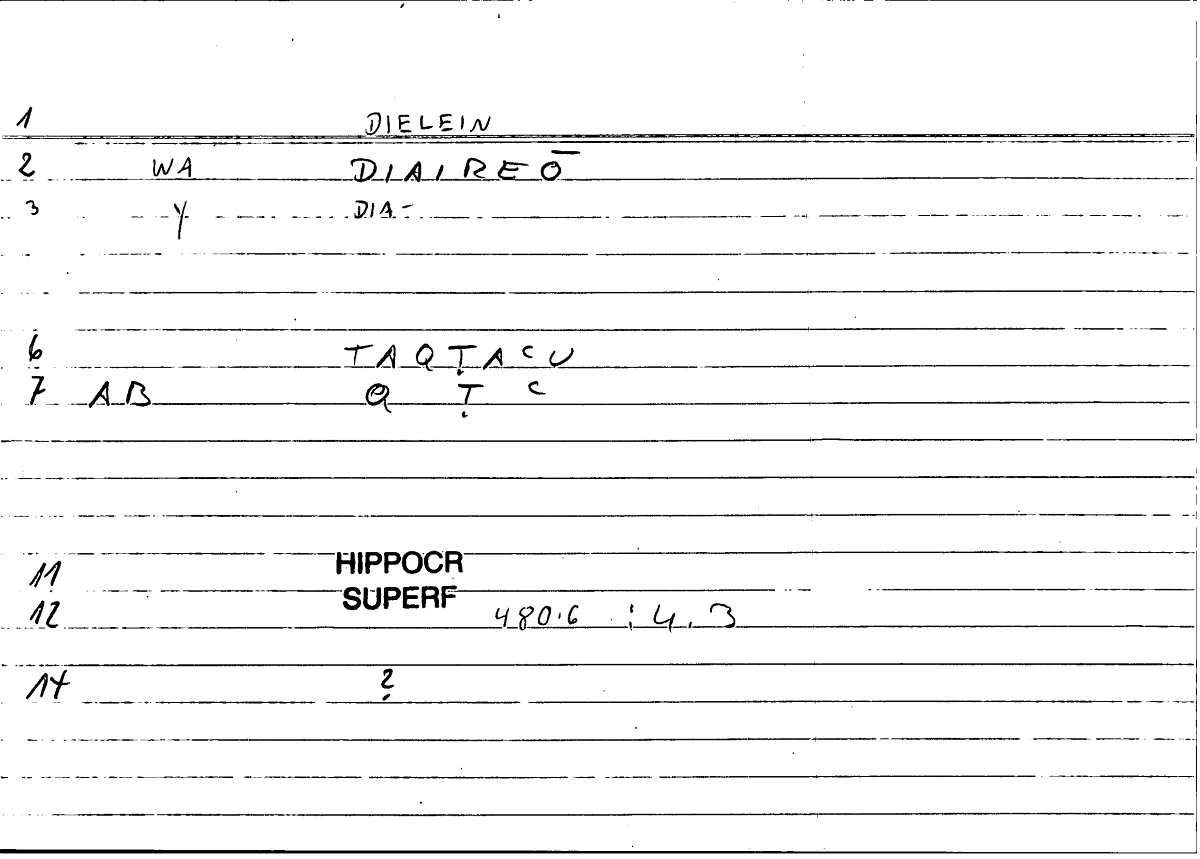 1 DIELEIN
2 WA DIAIREŌ
3 Y DIA-
6 TAQṬACU
7 AB Q Ṭ C
11 HIPPOCR
12 SUPERF 480.6 : 4.3
14 ?